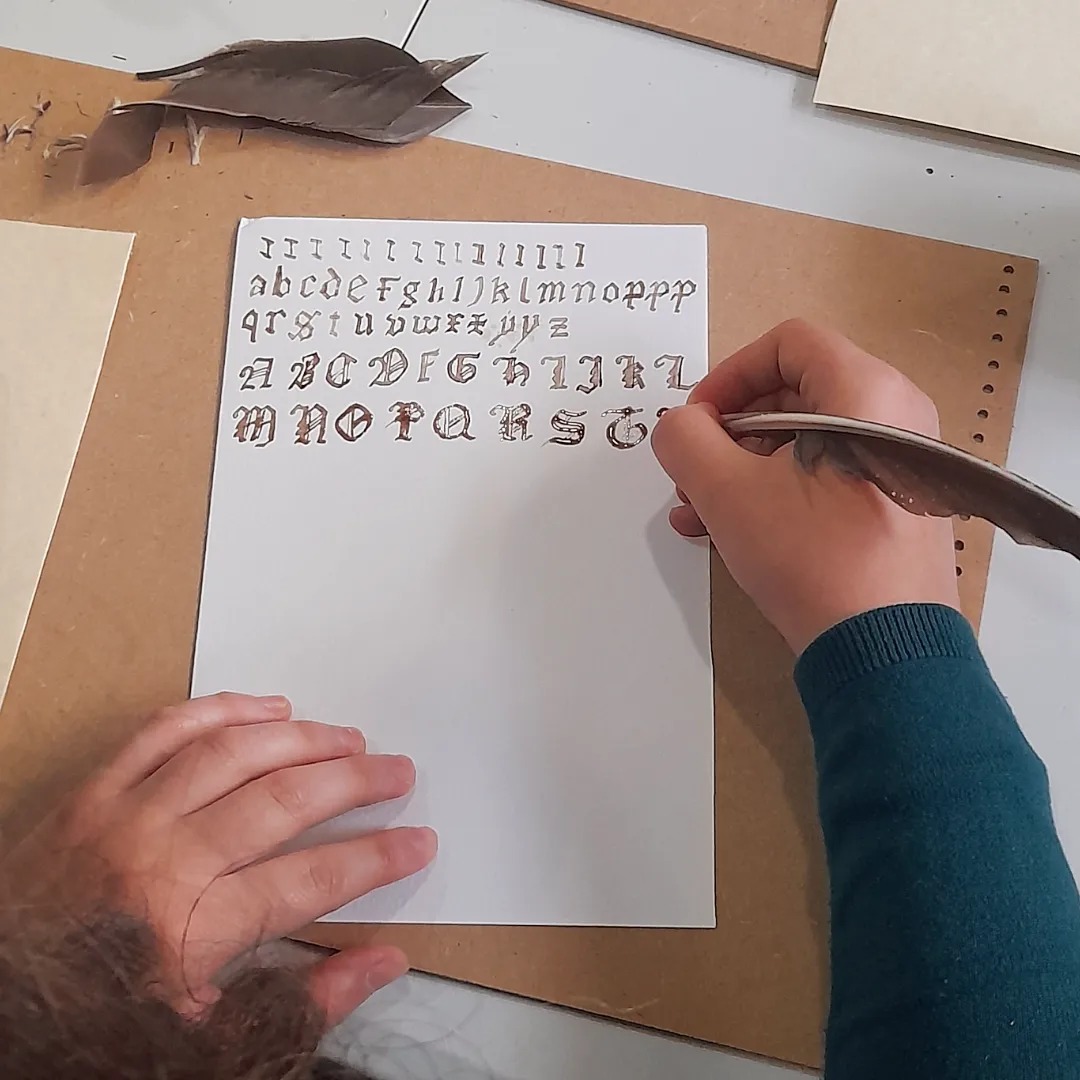 I I I I I I I I I I I I I I I I
a b c d e f g h i j k l m n o p p p
q r s t u v w x x y y z
A B C D F G H I J K L
M N O P Q R S T